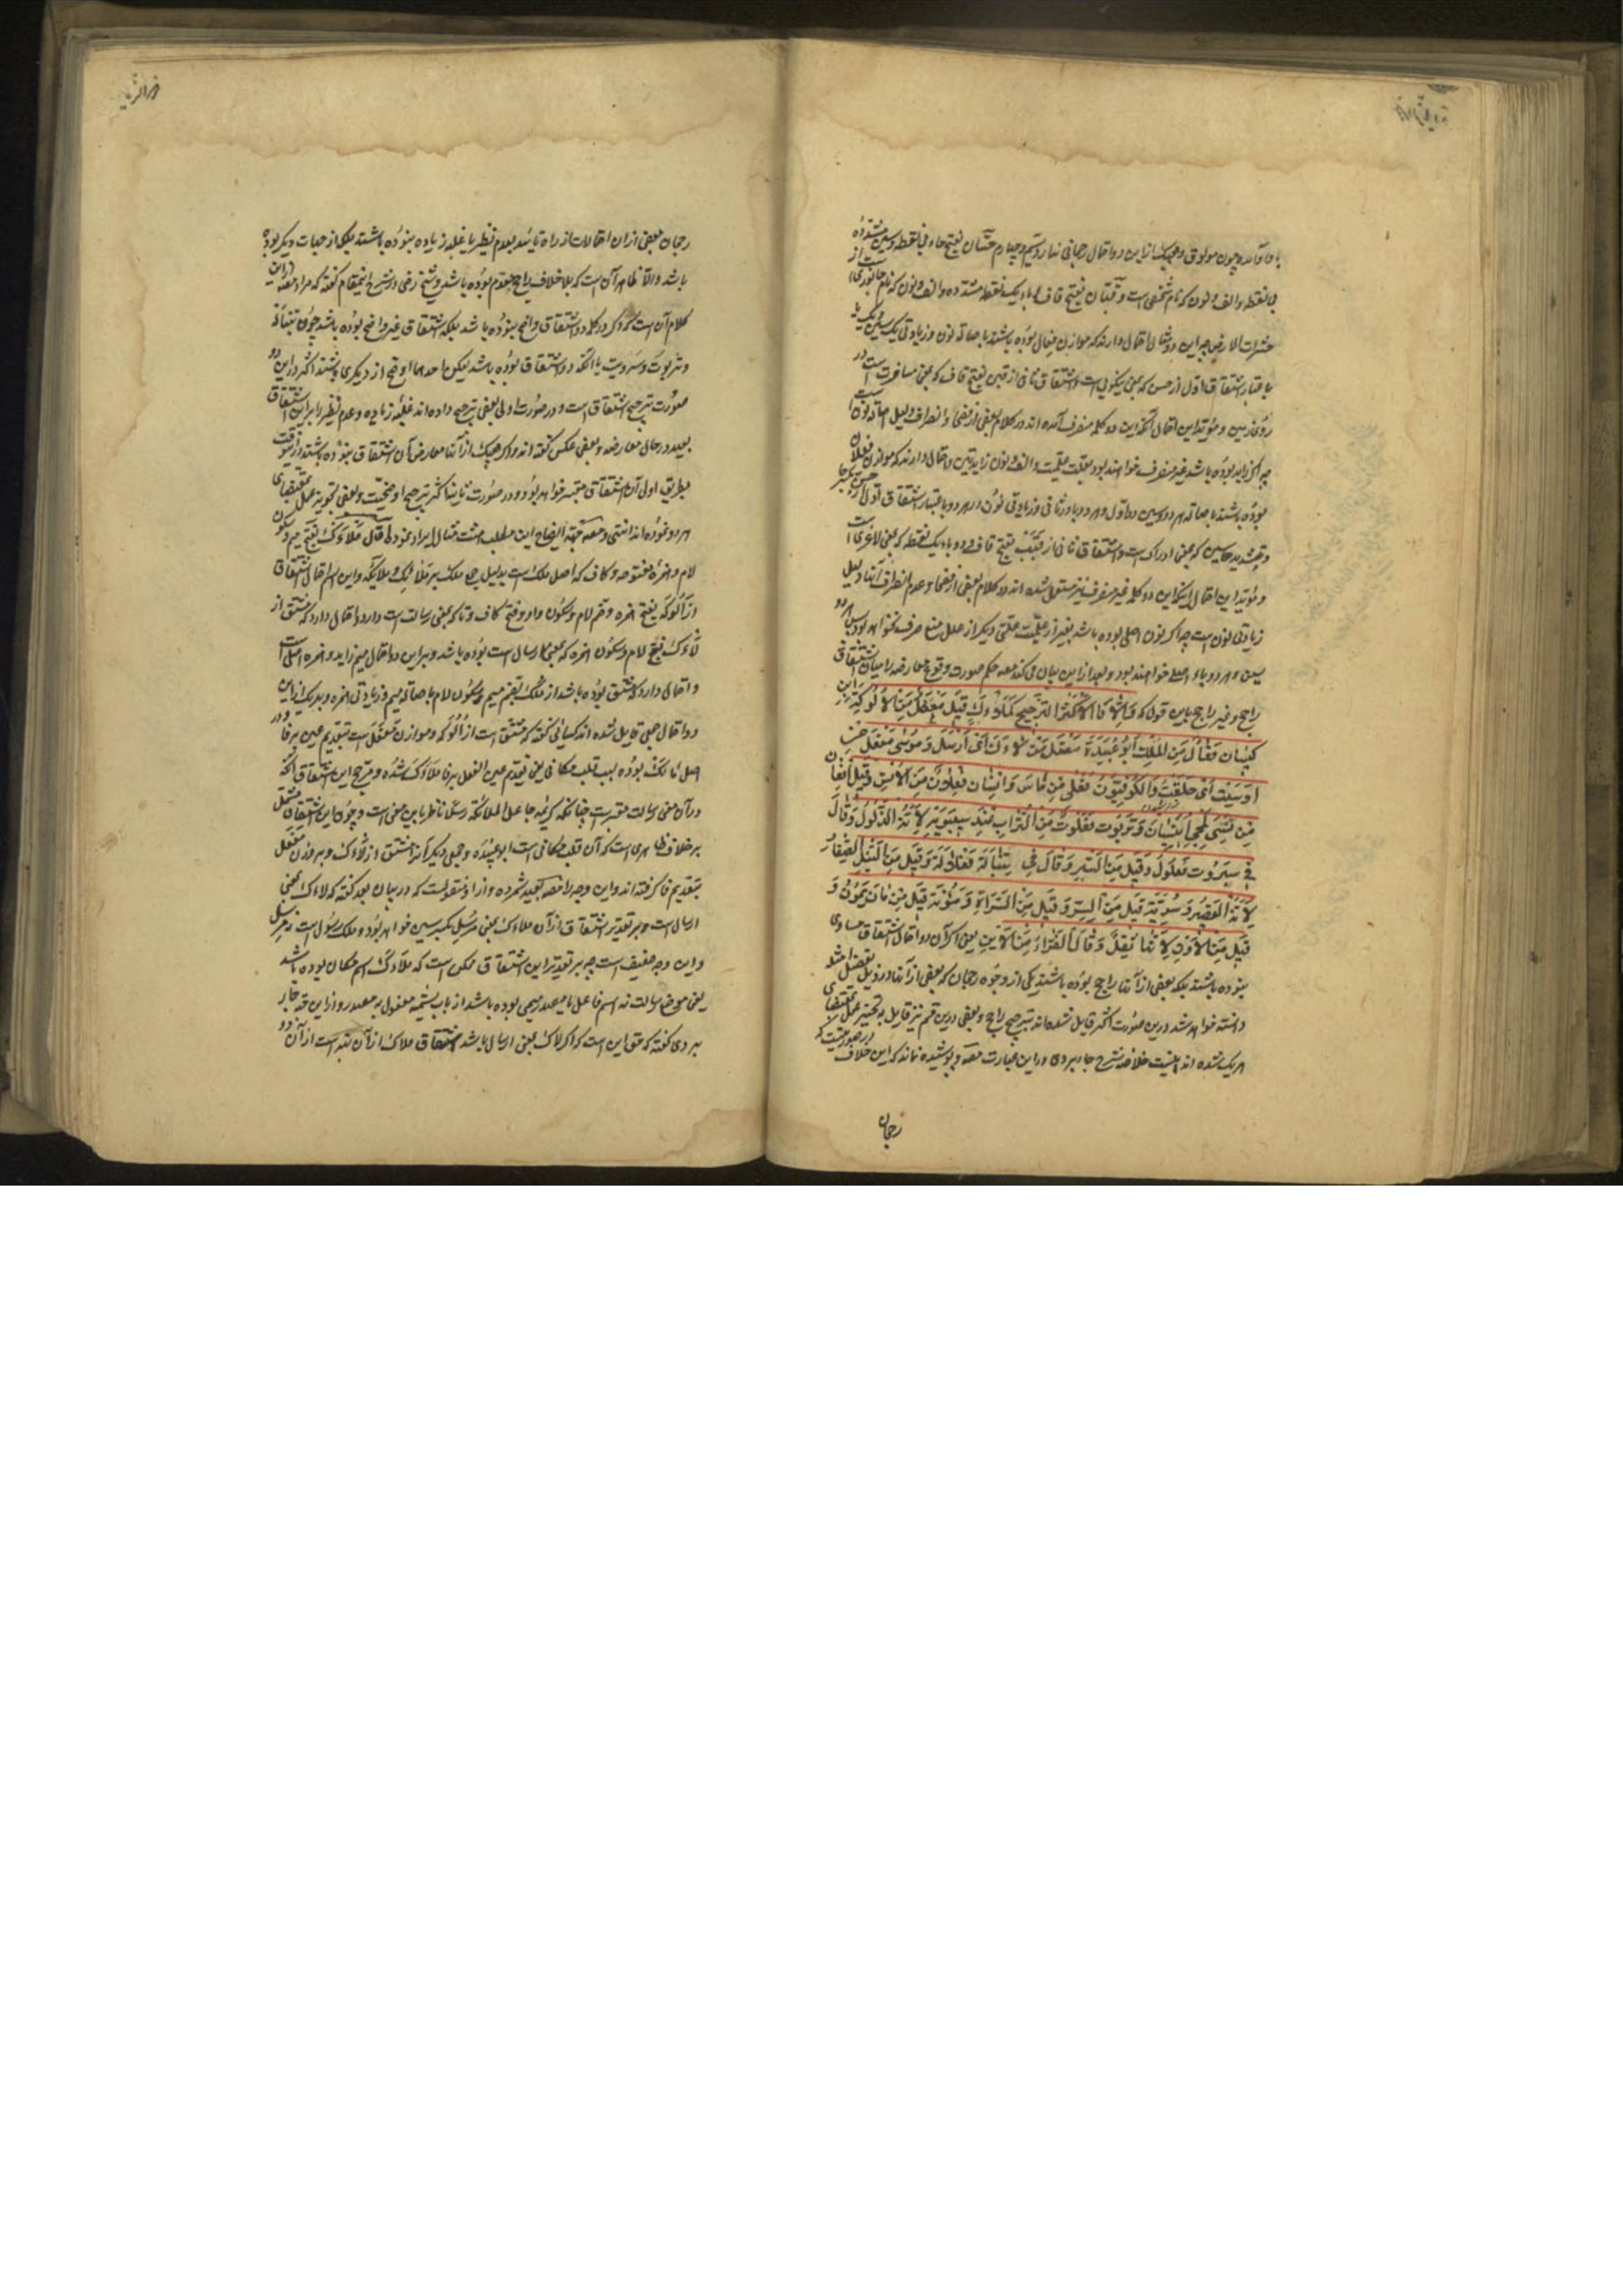 با واو آمده چون مولوق وهیچیک از این دو احتمال رجحانی ندارد قسم چهارم حسّان بفتح حاء بی نقطه وسین مشدده
بی نقطه والف ونون که نام شخصی است و قبّان بفتح قاف وباء یک نقطه مشدده والف ونون که نام جانوری است از
حشرات الارض چه این دو مثال احتمال دارند که موازن فعال بوده باشند باصالة نون وزیادتی یک سین ویک با
باعتبار اشتقاق اول از حسن که بمعنی نیکویی است واشتقاق ثانی از قبن بفتح قاف که بمعنی مسافرت است در
روی زمین ومؤید این احتمال آنکه این دو کلمه منصرف آمده اند در کلام بعضی از فصحا وانصراف دلیل اصالة نون است
چه اگر زاید بوده باشد غیر منصرف خواهند بود بعلت علمیت والف ونون زایدتین واحتمال دارند که موازن فعلان
بوده باشند باصالة هر دو سین در اول وهر دو با در ثانی وزیادتی نون در هر دو باعتبار اشتقاق اول از حسّ بحا
وتشدید سین که بمعنی ادراک است واشتقاق ثانی از قبب بفتح قاف ودو باء یک نقطه که بمعنی لاغری است
ومؤید این احتمال اینکه این دو کلمه غیر منصرف نیز مستعمل شده اند در کلام بعضی از فصحا وعدم انصراف آنها دلیل
زیادتی نون است چه اگر نون اصلی بوده باشد بغیر از علمیت علتی دیگر از علل منع صرف نخواهد بود پس هر دو
سین وهر دو باء اصلی خواهند بود وبعد از این بیان می کند مصه حکم صورت وقوع معارضه را میان اشتقاق
راجح وغیر راجح باین قول که وَاِلّا فَالاَکْثَرُ التَّرجیحُ کَمَلأَکٍ قیلَ مَفعَلٌ مِنَ الاَلُوکَةِ ابنُ
کَیسان فَعْأَلٌ مِنَ المِلکِ اَبُو عُبَیدَةَ مَفعَلٌ مِنْ لَأَکَ اَیْ اَرْسَلَ وَمُوسی مُفعَلٌ مِنْ
اَوْسَیْتُ اَیْ حَلَقْتُ وَالکُوفِیُّونَ فُعْلی مِنْ ماسَ وَاِنْسان فِعْلانٌ مِنَ الاُنْسِ وَقیلَ اِفْعان
مِنْ نَسِیَ لِمَجیءِ اُنَیْسیان وَتَرَبُوت فَعَلُوتٌ مِنَ التُّرابِ عِندَ سیبَوَیْهِ لِاَنَّهُ الذَّلُولُ وَقالَ
فی سُبْرُوت فُعْلُولٌ وَقیلَ مِنَ السَّبْرِ وَقالَ فی تِنْبالَة فِعْلالَة وَقیلَ مِنَ النَّبَلِ الصِّغارُ
لِاَنَّهُ القَصیرُ وَسُرِّیَّة قیلَ مِنَ السِّرِّ وَقیلَ مِنَ السَّراةِ وَمَئُونَة قیلَ مِنْ مانَ یَمُونُ وَ
قیلَ مِنَ الاَوْنِ لِاَنَّها ثِقَلٌ وَقالَ الفَرّاءُ مِنَ الاَیْنِ یعنی اگر آن دو احتمال اشتقاق مساوی
نبوده باشند بلکه بعضی از آنها راجح بوده باشند بیکی از وجوه رجحان که بعضی از آنها در ذیل تفصیل امثله
دانسته خواهد شد در این صورت اکثر قایل شده اند بترجیح راجح وبعضی در این قسم نیز قایل بتجویز عمل بمقتضای
هر یک شده اند اینست خلاصه شرح جاربردی در این عبارت مصه وپوشیده نماند که این خلاف در صورتیست که
رجحان
رجحان بعضی از ان احتمالات از راه تأیید بعدم نظیر یا غلبه زیاده نبوده باشند بلکه از جهات دیگر بوده
باشد والّا ظاهر آن است که بلا خلاف راجح مقدم بوده باشد وشیخ رضی در شرح اینمقام گفته که مراد مصه از این
کلام آن است که اگر در کلمه دو اشتقاق واضح نبوده باشد بلکه اشتقاق غیر واضح بوده باشد چون تنبالة
وتربوت وسبروت یا آنکه دو اشتقاق بوده باشد لیکن احدهما اوضح از دیگری باشند اکثر در این دو
صورت ترجیح اشتقاق است ودر صورت اولی بعضی ترجیح داده اند غلبه زیاده وعدم نظیر را بر این اشتقاق
بعید در حال معارضه وبعضی عکس گفته اند واگر هیچیک از آنها معارض آن اشتقاق نبوده باشند در این وقت
بطریق اولی آن اشتقاق معتبر خواهد بود ودر صورت ثانیه اکثر ترجیح اوضحیت وبعضی تجویز عمل بمقتضای
هر دو نموده اند انتهی ومصه جهة ایضاح این مطلب هشت مثال ایراد نموده اول مَلأَکٌ بفتح میم وسکون
لام وهمزه مفتوحه وکاف که اصل ملک است بدلیل جمع ملک بر ملائک وملائکه واین اسم احتمال اشتقاق
از اَلُوکَه بفتح همزه وضم لام وسکون واو وفتح کاف وتا که بمعنی رسالت است دارد واحتمال دارد که مشتق از
لَأْک بفتح لام وسکون همزه که بمعنی ارسال است بوده باشد وبر این دو احتمال میم زاید وهمزه اصلی است
واحتمال دارد که مشتق بوده باشد از مُلک بضم میم وسکون لام باصالة میم وزیادتی همزه وبهر یک از این
دو احتمال جمعی قایل شده اند کسائی گفته که مشتق است از اَلُوکَه وموازن مَعْفَل است بتقدیم عین بر فا ودر
اصل مَأْلَک بوده بسبب قلب مکانی یعنی تقدیم عین الفعل بر فا مَلأَک شده ومرجح این اشتقاق آنکه
در آن معنی رسالت معتبر است چنانکه کریمه جاعل الملائکة رسلا ناظر باین معنی است وچون این اشتقاق مشتمل
بر خلاف ظاهری است که آن قلب مکانی است ابو عبیده وجمعی دیگر آنرا مشتق از لَأْک وبر وزن مَفْعَل
بتقدیم فا گرفته اند واین وجه را مصه بعید شمرده واز او منقولست که در بیان بعد گفته که لَأَک بمعنی
ارسال است وبر تقدیر اشتقاق از آن ملأک بمعنی مُرسِل بکسر سین خواهد بود وملک رسول است نه مُرسِل
واین وجه ضعیف است چه بر تقدیر این اشتقاق ممکن است که ملأک اسم مکان بوده باشد
یعنی موضع رسالت نه اسم فاعل یا مصدر میمی بوده باشد از باب تسمیه مفعول به مصدر واز این قبیل جار
بردی گفته که حق این است که اگر لأک بمعنی ارسال باشد اشتقاق ملأک از آن بهتر است از آن دو